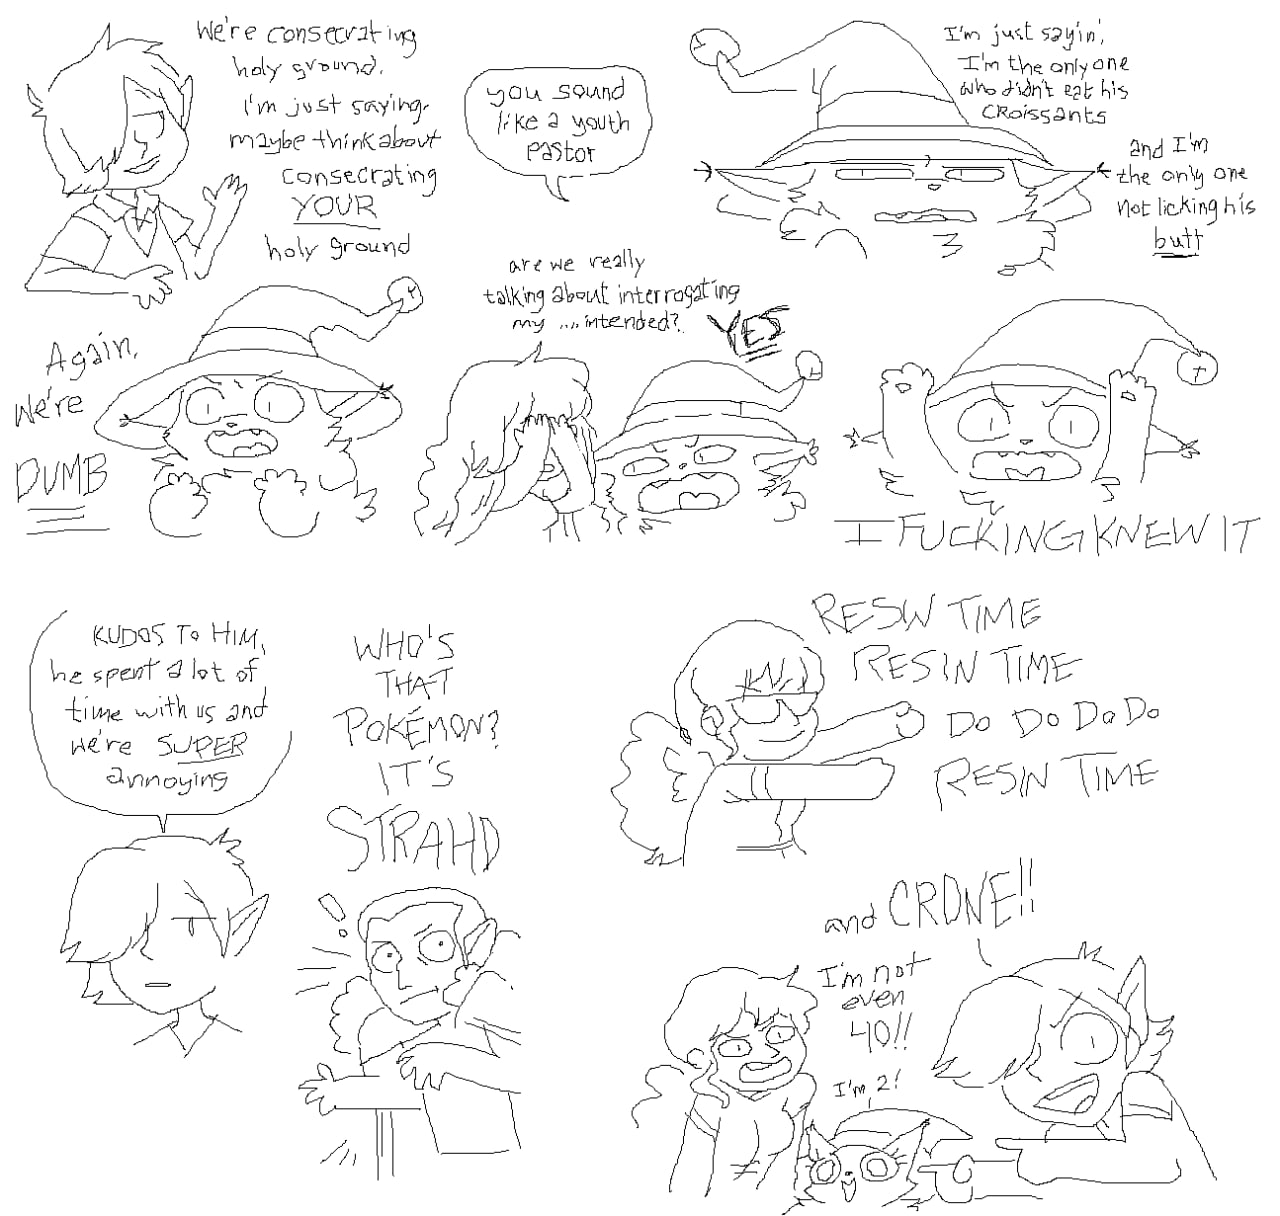 We're consecrating
holy ground.
I'm just saying.
maybe think about
consecrating
YOUR
holy ground
you sound
like a youth
pastor
I'm just sayin',
I'm the only one
who didn't eat his
croissants
and I'm
the only one
not licking his
butt
Again,
we're
DUMB
are we really
talking about interrogating
my ....intended?
YES
I FUCKING KNEW IT
KUDOS TO HIM,
he spent a lot of
time with us and
we're SUPER
annoying
WHO'S
THAT
POKÉMON?
IT'S
STRAHD
RESIN TIME
RESIN TIME
DO DO DO DO
RESIN TIME
and CRONE!!
I'm not
even
40!!
I'm 2!